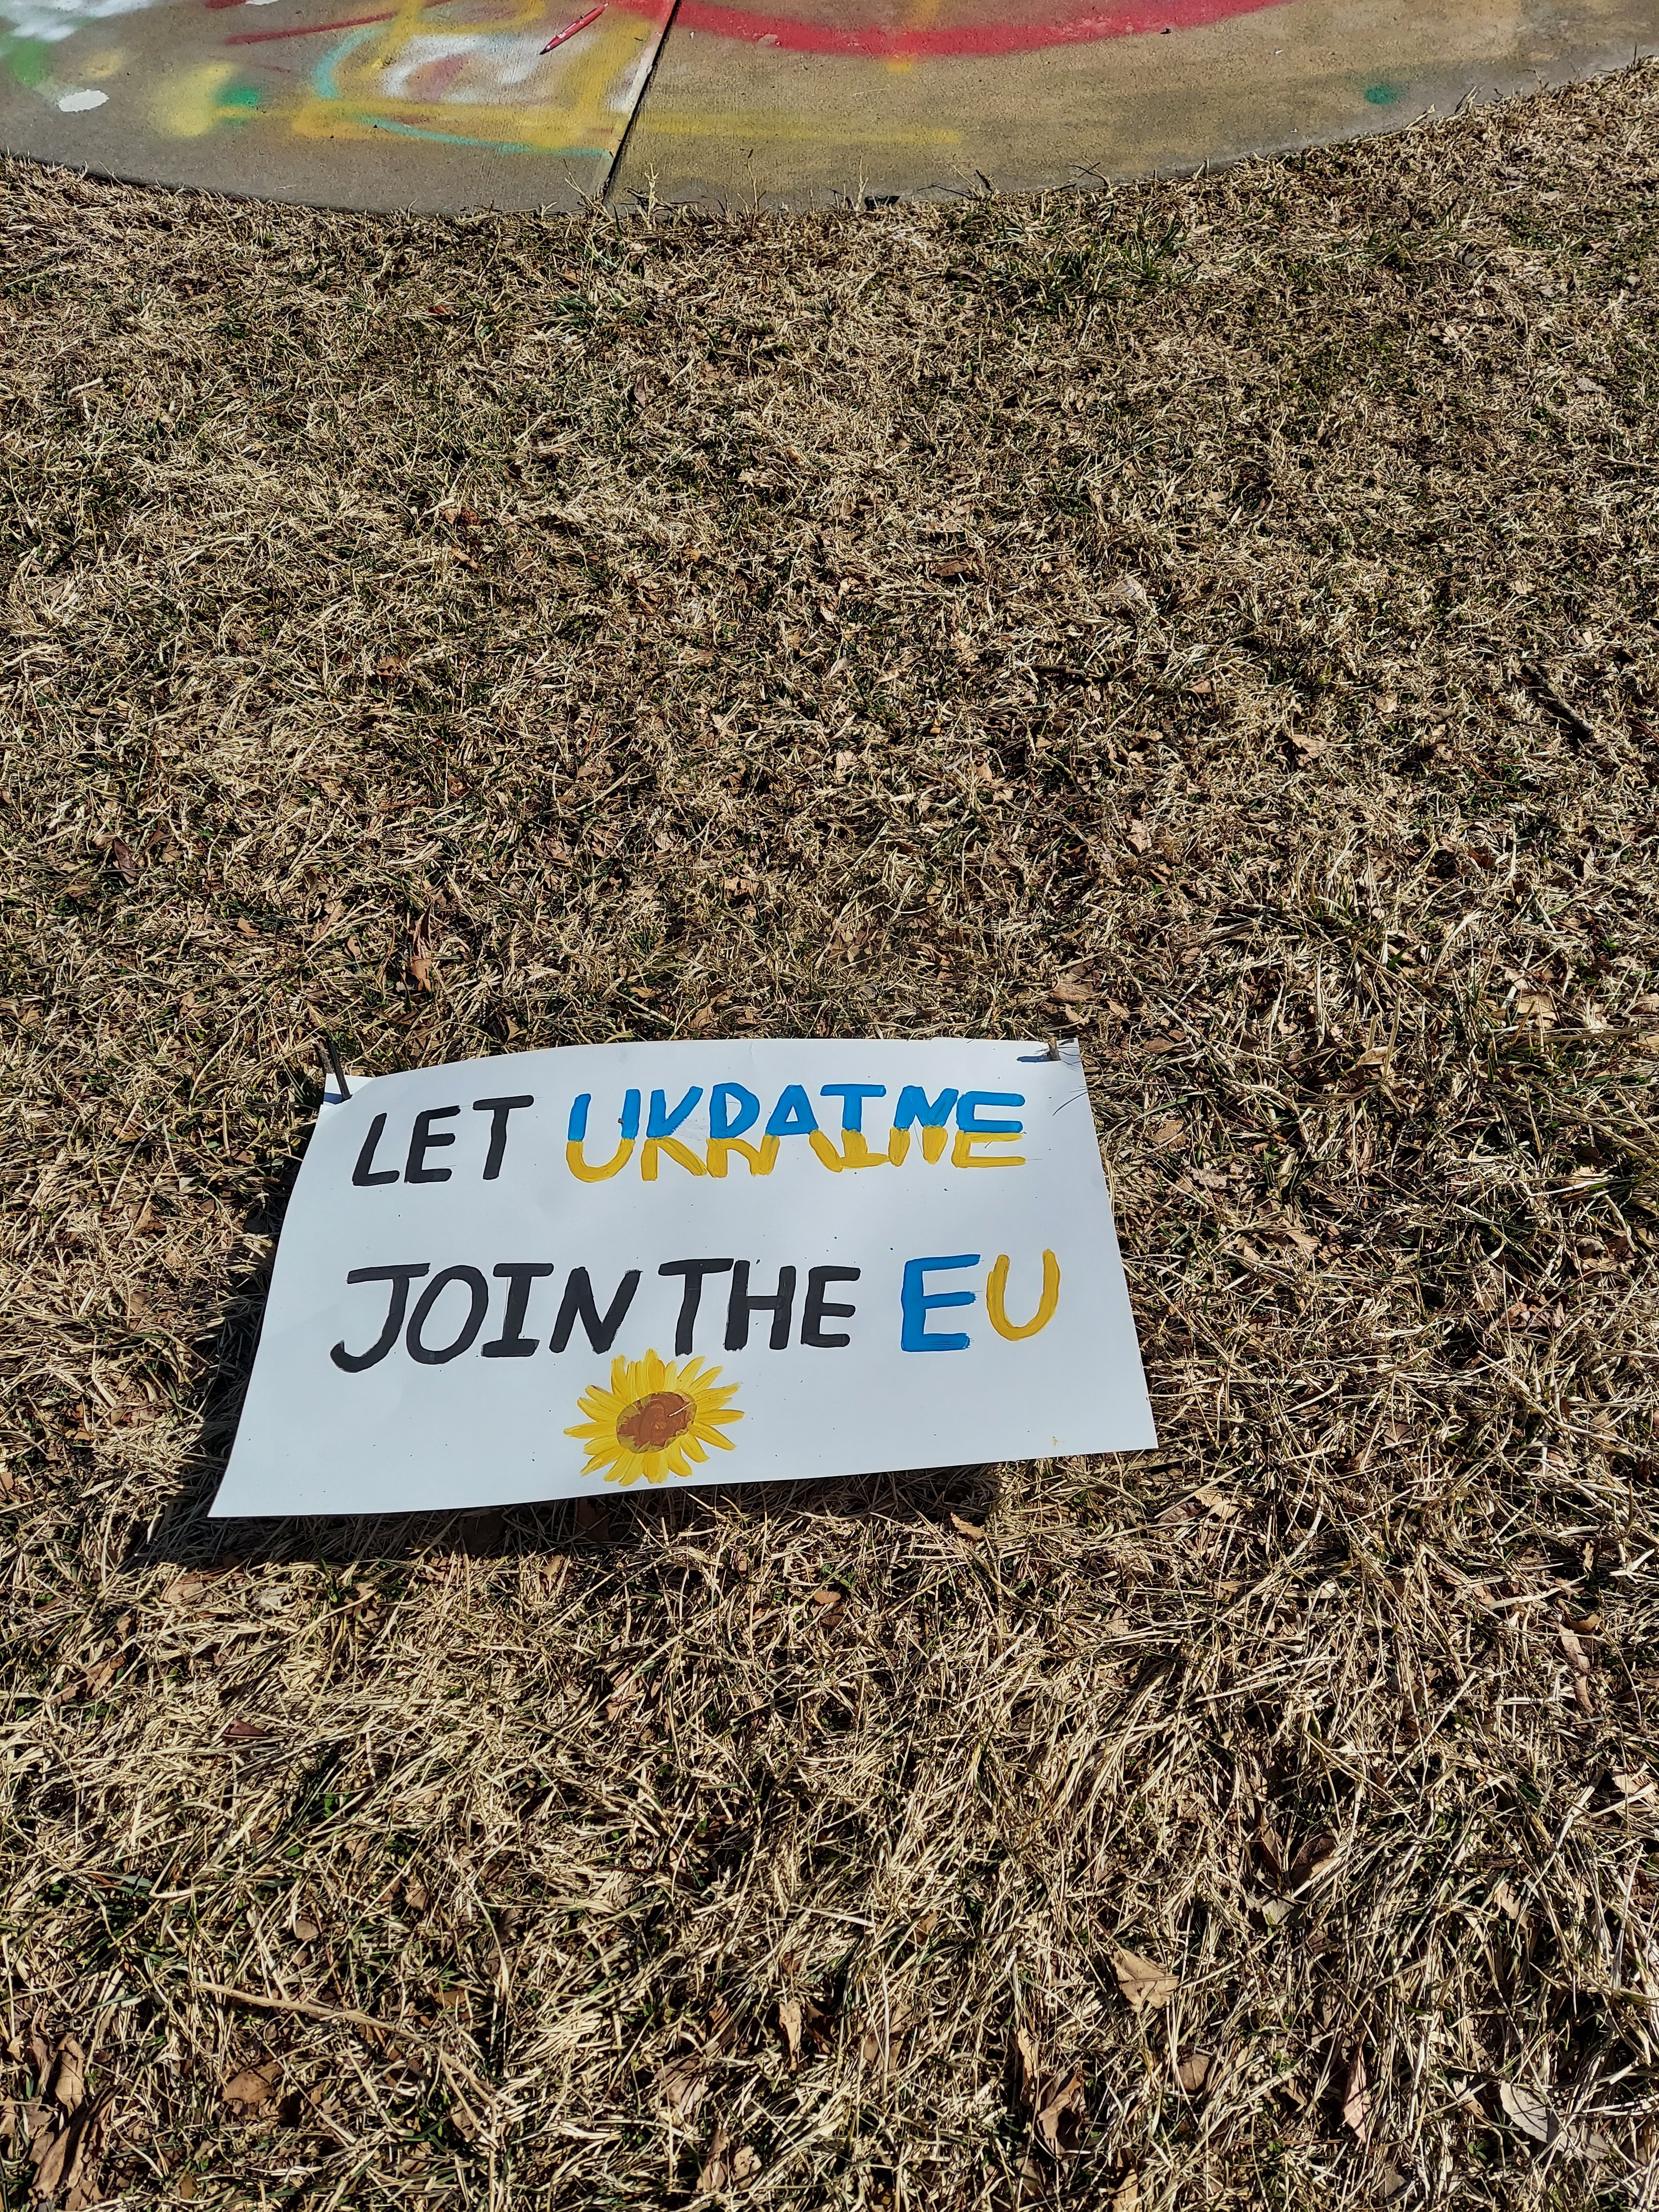 LET UKRAINE
JOIN THE EU